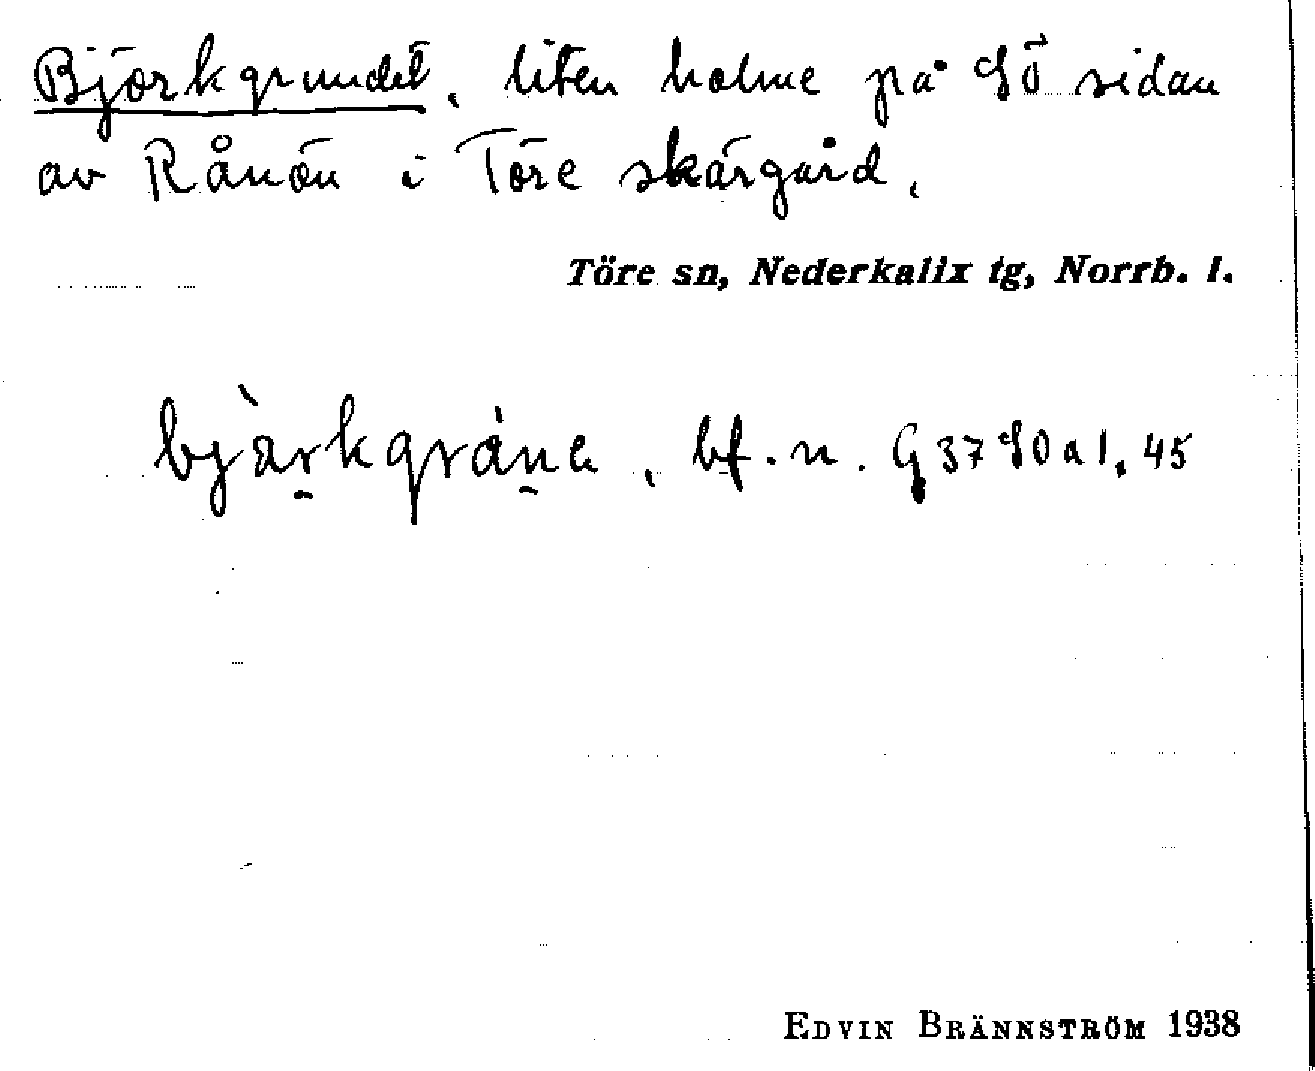 Björkgrundet, liten holme på SÖ sidan
av Rånön i Töre skärgård.
Töre sn, Nederkalix tg, Norrb. l.
bf. n. G 37 SO a 1, 45
EDVIN BRÄNNSTRÖM 1938